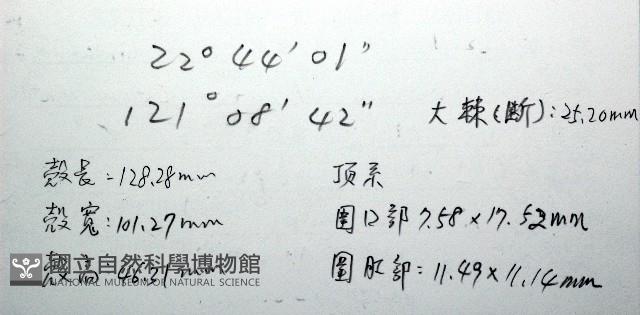 22° 44' 01"
121° 08' 42"
大棘(斷):25.20mm
殼長:128.28mm
殼寬:101.27mm
殼高:46.51mm
頂系
圍口部 7.58×17.52mm
圍肛部:11.49×11.14mm
國立自然科學博物館
NATIONAL MUSEUM OF NATURAL SCIENCE